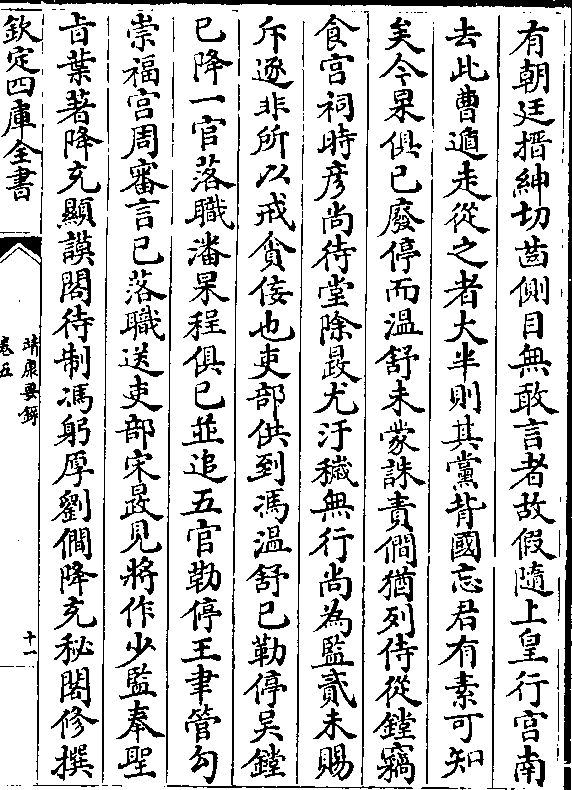 有朝廷搢紳切齒側目無敢言者故假隨上皇行宫南
去此曹遁走從之者大半則其黨背國忘君有素可知
矣今杲俱已廢停而溫舒未蒙誅責僴猶列侍從鏜竊
食宫祠時彦尚待堂除晸尤汙穢無行尚為監貳未賜
斥逐非所以戒貪佞也吏部供到馮溫舒已勒停吳鏜
已降一官落職潘杲程俱已並追五官勒停王聿管勾
崇福宫周審言已落職送吏部宋晸見將作少監奉聖
㫖葉著降充顯謨閣待制馮躬厚劉僴降充秘閣修撰
欽定四庫全書
靖康要錄
卷五
十一